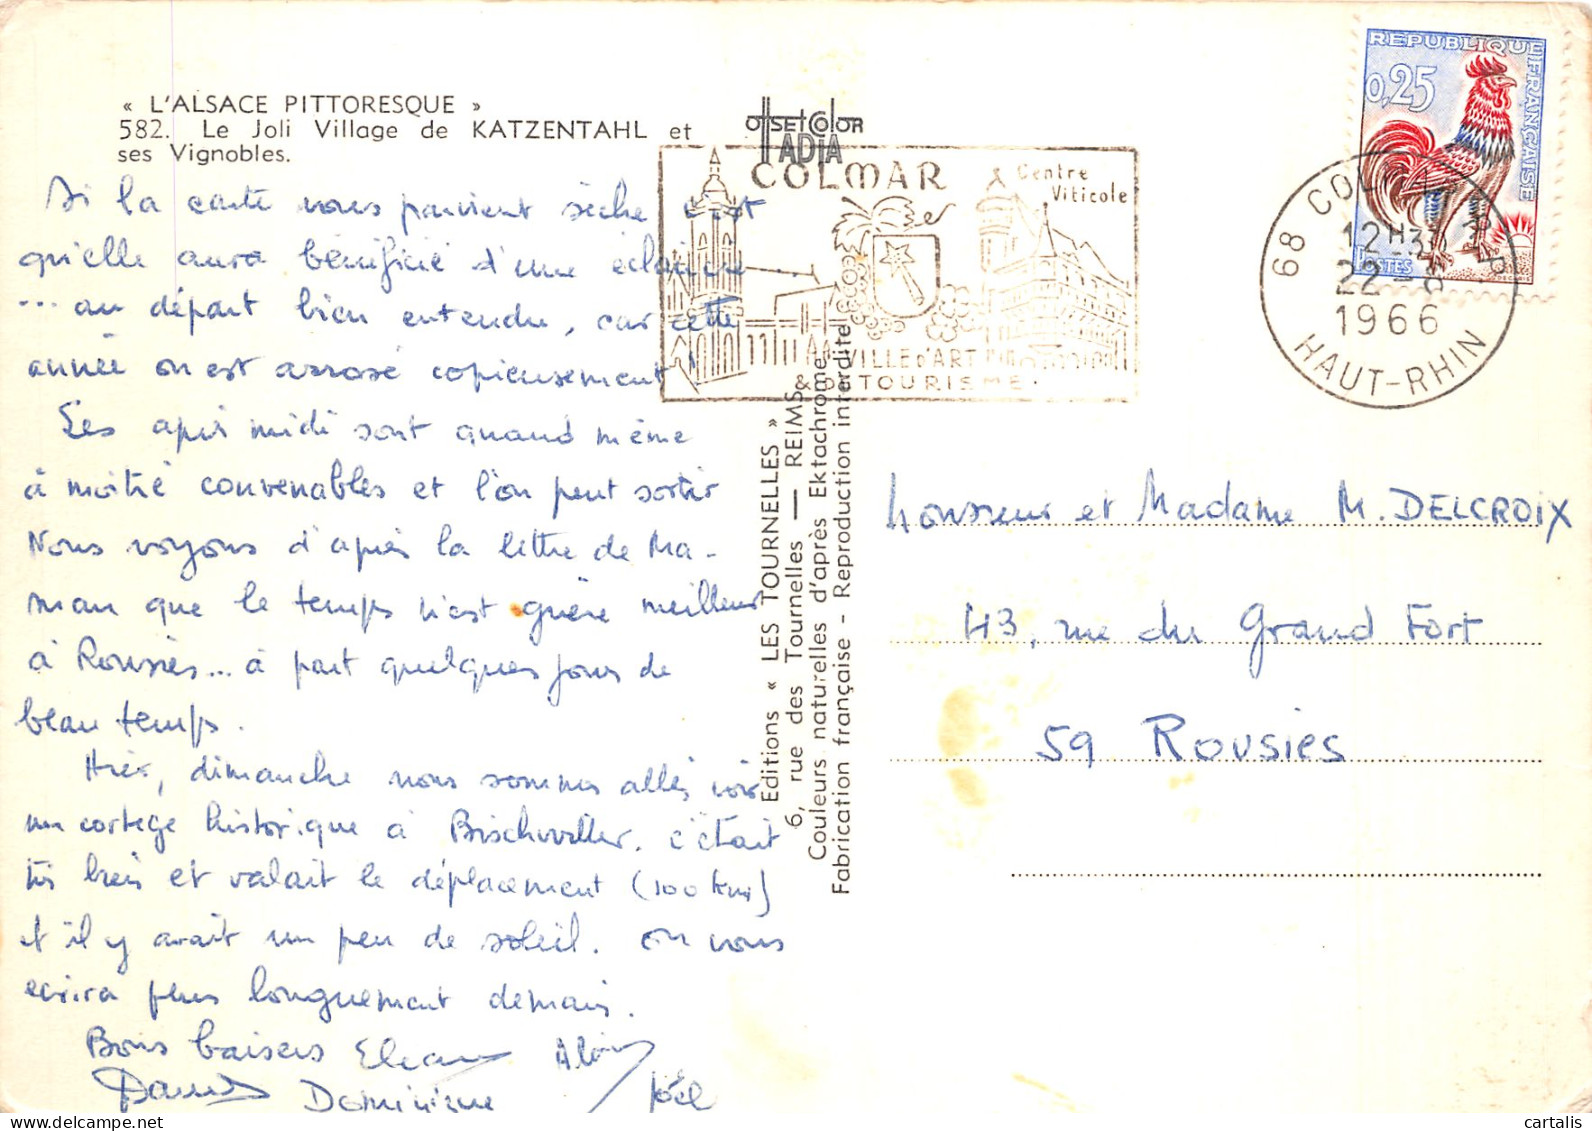 « L'ALSACE PITTORESQUE »
582. Le Joli Village de KATZENTAHL et
ses Vignobles.
Si la carte vous parvient sèche c'est
qu'elle aura bénéficié d'une éclaircie
... au départ bien entendu, car cette
année on est arrosé copieusement !
Les après midi sont quand même
à moitié convenables et l'on peut sortir
Nous voyons d'après la lettre de Ma-
man que le temps n'est guère meilleur
à Rousies... à part quelques jours de
beau temps.
Hier, dimanche nous sommes allés voir
un cortège historique à Bischwiller. c'était
très bien et valait le déplacement (100 kms)
et il y avait un peu de soleil. On vous
écrira plus longuement demain.
Bons baisers Alain
Dominique Joël
OFFSET COLOR
IADIA
COLMAR
Centre
Viticole
VILLE D'ART
& DE TOURISME
68 COLMAR R.P.
12H
22 - 8
1966
HAUT-RHIN
REPUBLIQUE FRANÇAISE
0,25
POSTES
Editions « LES TOURNELLES »
6, rue des Tournelles — REIMS
Couleurs naturelles d'après Ektachrome
Fabrication française - Reproduction interdite
Monsieur et Madame M. DELCROIX
43, rue du Grand Fort
59 Rousies
cartalis